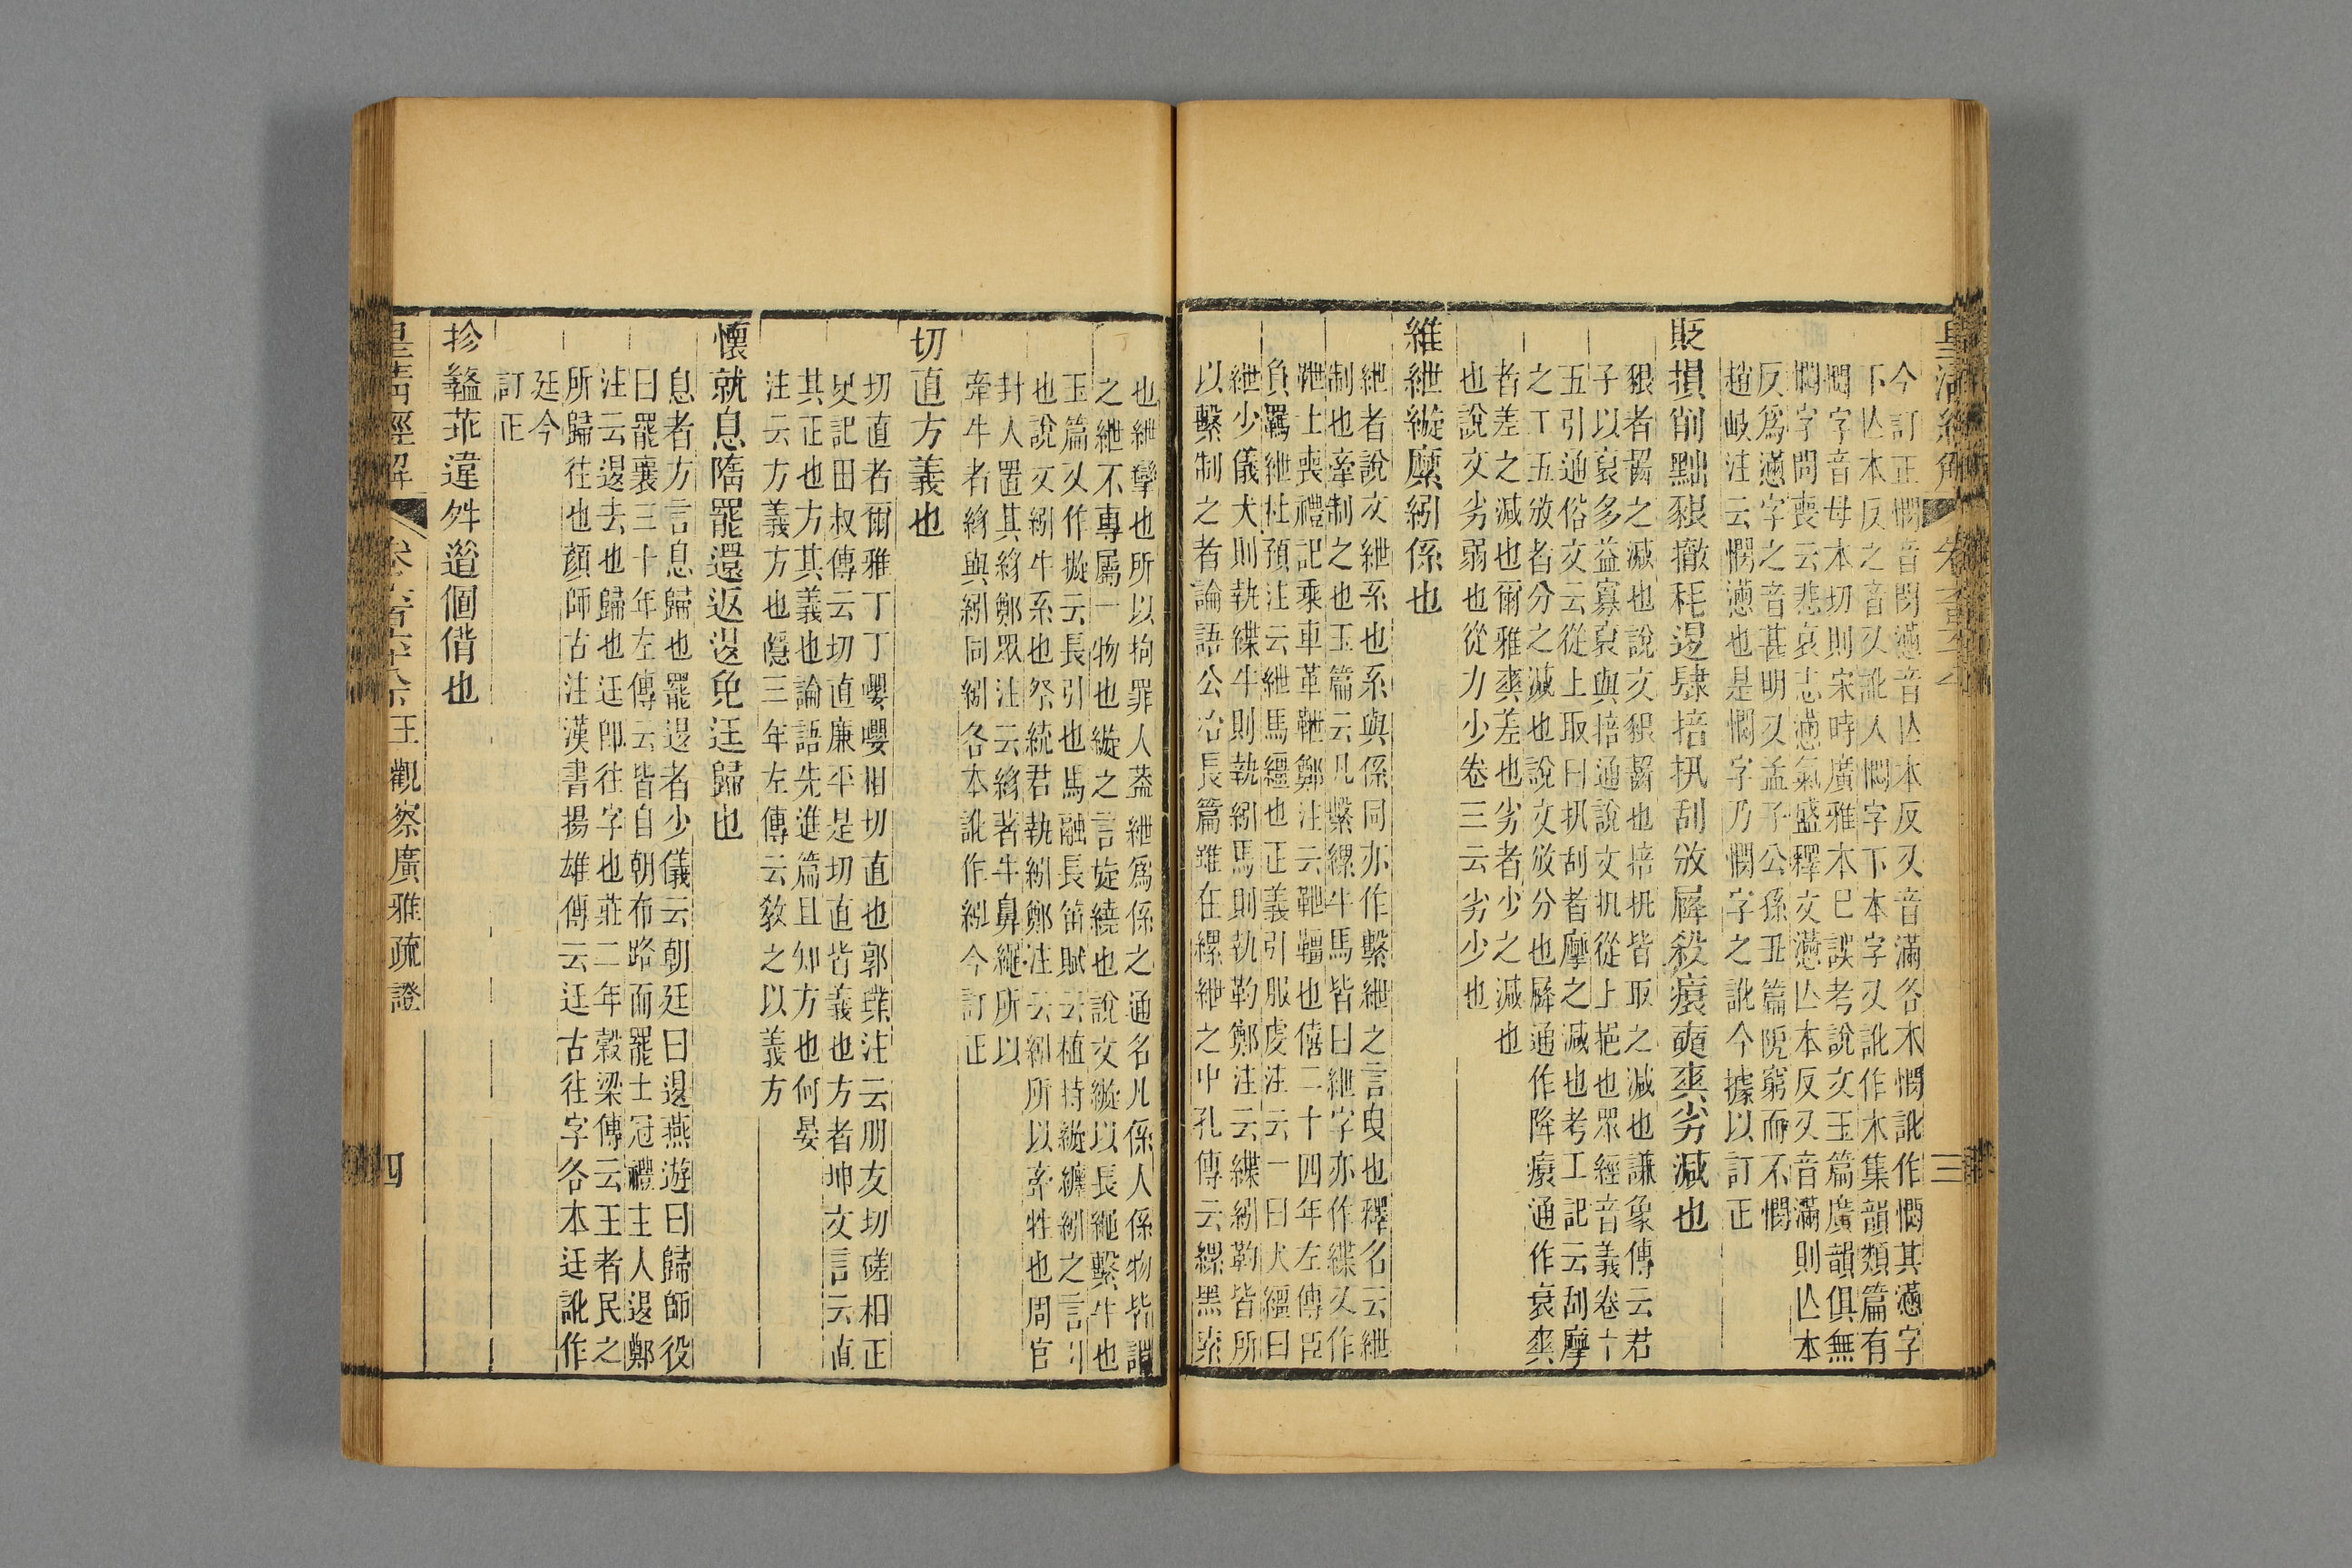 今訂正憫音悶懣音亾本反又音滿各本憫訛作憫其懣字
下亾本反之音又訛入憫字下本字又訛作木集韻類篇有
憫字音母本切則宋時廣雅本已誤考說文玉篇廣韻俱無
憫字問喪云悲哀志懣氣盛釋文懣亾本反又音滿則亾本
反爲懣字之音甚明又孟子公孫丑篇阨窮而不憫
趙岐注云憫懣也是憫字乃憫字之訛今據以訂正
貶損削黜豤撤秏退肆掊扟刮攽㞕殺瘊䪞爽劣減也
豤者齧之減也說文豤齧也掊扟皆取之減也謙象傳云君
子以裒多益寡裒與掊通說文扟從上挹也眾經音義卷十
五引通俗文云從上取曰扟刮者摩之減也考工記云刮摩
之工五攽者分之減也說文攽分也㞕通作降瘊通作衰爽
者差之減也爾雅爽差也劣者少之減也
也說文劣弱也從力少卷三云劣少也
維紲縦縻紖係也
紲者說文紲系也系與係同亦作繫紲之言曳也釋名云紲
制也牽制之也玉篇云凡繫縲牛馬皆曰紲字亦作緤又作
靾士喪禮記乘車革靾鄭注云靾韁也僖二十四年左傳臣
負羈紲杜預注云紲馬繮也正義引服虔注云一曰犬繮曰
紲少儀犬則執緤牛則執紖馬則執靮鄭注云緤紖靮皆所
以繫制之者論語公冶長篇雖在縲紲之中孔傳云縲黑索
也紲攣也所以拘罪人葢紲爲係之通名凡係人係物皆謂
之紲不專屬一物也縦之言旋繞也說文縦以長繩繫牛也
玉篇又作㯀云長引也馬融長笛賦云植持縦纏紖之言引
也說文紖牛系也祭統君執紖鄭注云紖所以牽牲也周官
封人置其絼鄭眾注云絼著牛鼻繩所以
牽牛者絼與紖同紖各本訛作紹今訂正
切直方義也
切直者爾雅丁丁嚶嚶相切直也郭璞注云朋友切磋相正
史記田叔傳云切直廉平是切直皆義也方者坤文言云直
其正也方其義也論語先進篇且知方也何晏
注云方義方也隱三年左傳云敎之以義方
懷就息隋罷還返退免迋歸也
息者方言息歸也罷退者少儀云朝廷曰退燕遊曰歸師役
曰罷襄三十年左傳云皆自朝布路而罷士冠禮主人退鄭
注云退去也歸也迋卽往字也莊二年榖梁傳云王者民之
所歸往也顏師古注漢書揚雄傳云迋古往字各本迋訛作
廷今
訂正
抮盭茈違舛逳個偝也
皇清經解 王觀察廣雅疏證 四
三